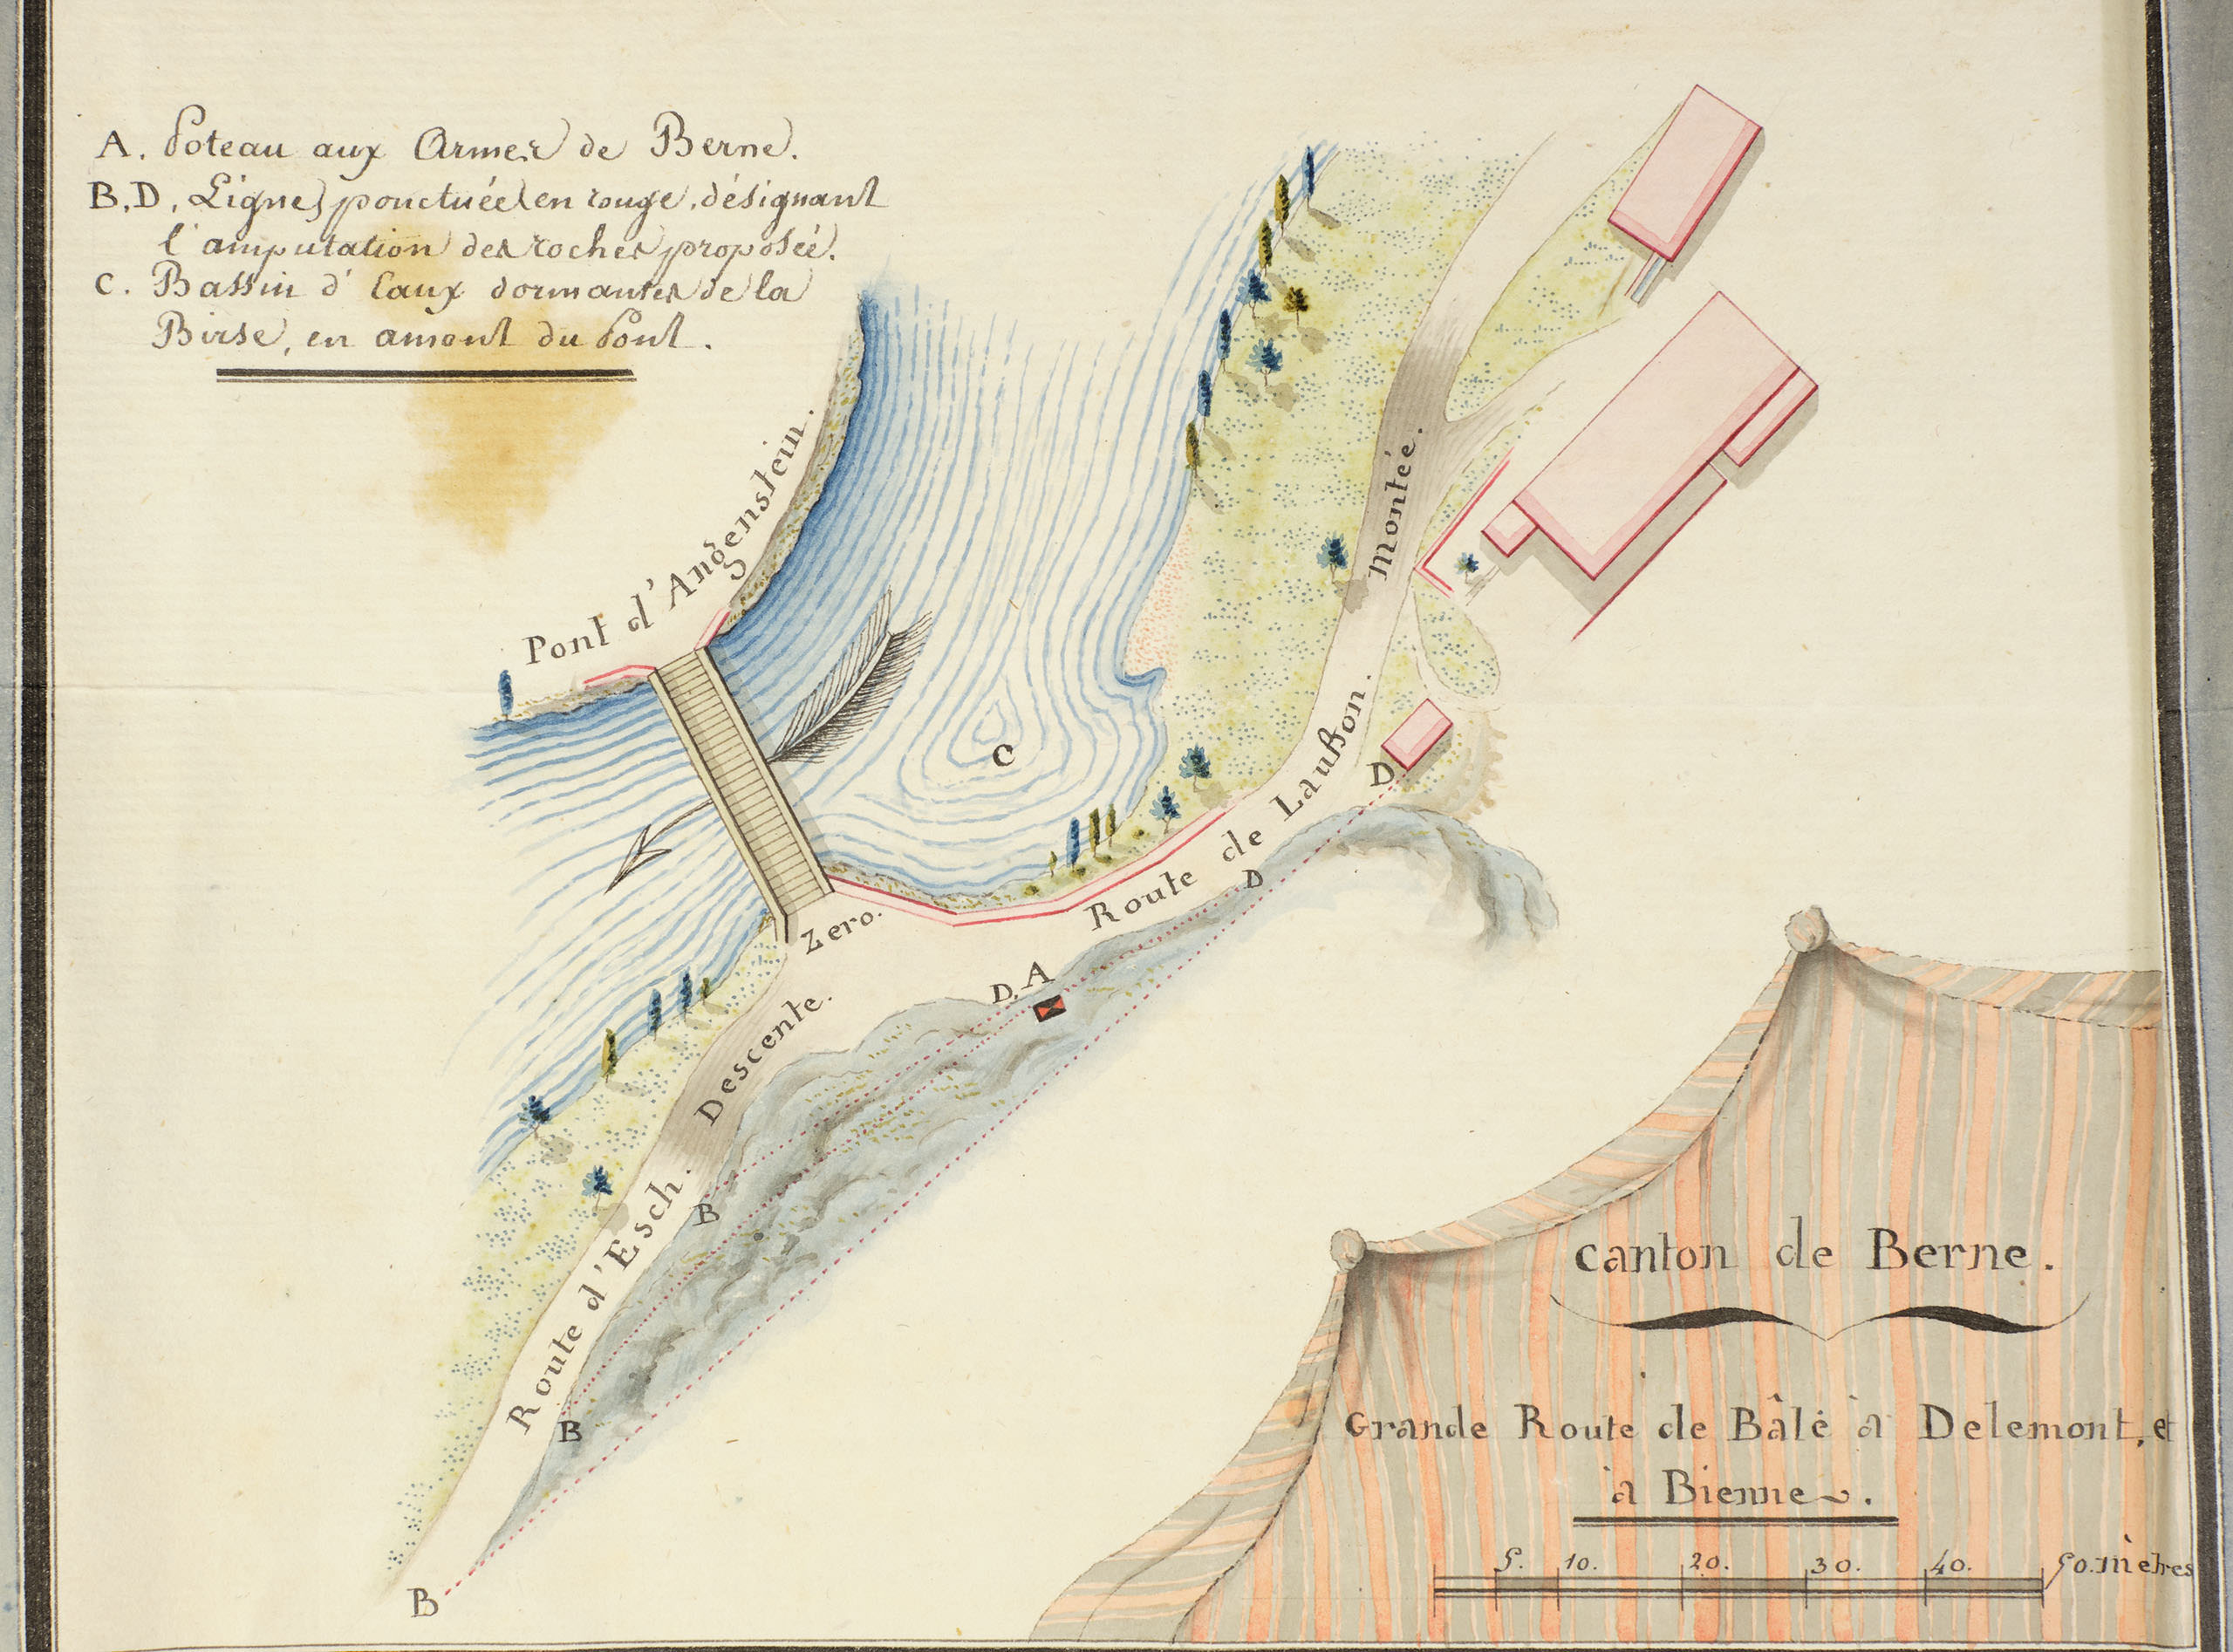 A. Poteau aux Armes de Berne.
B,D, Lignes ponctuées en rouge, désignant
l'amputation des roches proposée.
C. Bassin d'Eaux dormantes de la
Birse, en amont du Pont.
Pont d'Angenstein.
Montée.
C
Route de Laußon.
D
D
Zero.
D.A
Descente.
Route d'Esch.
B
B
B
canton de Berne.
Grande Route de Bâle à Delemont, et
à Bienne.
5. 10. 20. 30. 40. 50. mètres